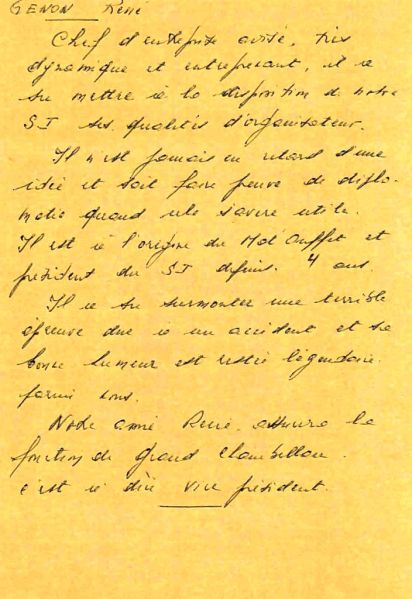 GENON René
Chef d'entreprise avisé, très
dynamique et entreprenant, il a
su mettre à la disposition de notre
S.I ses qualités d'organisateur.
Il n'est jamais en retard d'une
idée et sait faire preuve de diplo-
matie quand cela s'avère utile.
Il est à l'origine du d'Ouffet et
président du SI depuis 4 ans.
Il a su surmonter une terrible
épreuve due à un accident et sa
bonne humeur est restée légendaire
parmi nous.
Notre ami René assure la
fonction de grand
c'est à dire vice président.